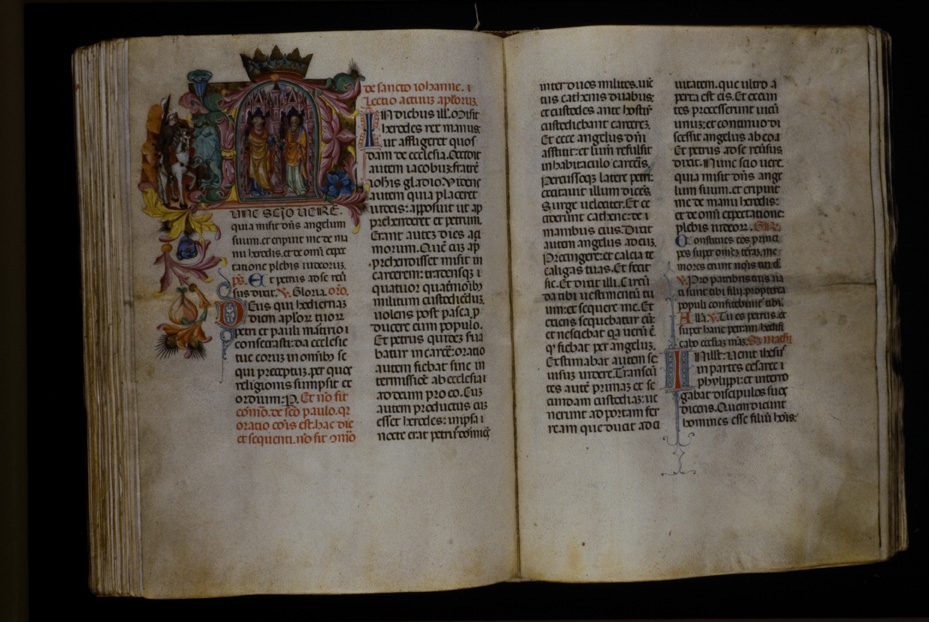 unc scio vere.
quia misit dns angelum
suum. et eripuit me de ma
nu herodis. et de omi expec
tatione plebis iudeorum.
ps. Et petrus ad se reu
sus dixit. V. Gloria. oro.
Deus qui hodiernam
diem aplor tuor
petri et pauli martirio
consecrasti: da ecclesie
tue eorum in omnibus se
qui preceptum. per quos
religionis sumpsit ex
ordium. P. Et no fit
como. de sco paulo. qr
oratio cois est. hac die
et sequenti. no fit como
de sancto iohanne.
Lectio actuum aplorum.
In diebus ill. Misit
herodes rex manus
ut affligeret quos
dam de ecclesia. Occidit
autem iacobum fratrem
iohis gladio. Videns
autem quia placeret
iudeis: apposuit ut ap
prehenderet et petrum.
Erant autem dies aç
morum. Quem cum ap
prehendisset misit in
carcerem: tradensq
quatuor quaternionibus
militum custodiendum.
volens post pasca pro
ducere eum populo.
Et petrus quidem ser
vabatur in carcere: oratio
autem fiebat sine in
termissione ab ecclesia
ad deum pro eo. Cum
autem producturus eum
esset herodes: in ipsa
nocte erat petrus dormiens
inter duos milites. vin
ctus cathenis duabus:
et custodes ante hostium
custodiebant carcerem.
Et ecce angelus dni
astitit: et lumen refulsit
in habitaculo carceris.
Percussoq latere petri:
excitauit illum dicens.
Surge velociter. Et ce
ciderunt cathene de
manibus eius. Dixit
autem angelus ad eum.
Precingere: et calcia te
caligas tuas. Et fecit
sic. Et dixit illi. Circum
da tibi vestimentum tu
um: et sequere me. Et
exiens sequebatur eum:
et nesciebat qa verum est
qd fiebat per angelum.
Estimabat autem se
visum videre. Transeun
tes aute primam et se
cundam custodiam: ve
nerunt ad portam fer
ream que ducit ad ci
uitatem. que ultro a
perta est eis. Et exeun
tes processerunt vicum
unum: et continuo di
scessit angelus ab eo.
Et petrus ad se reusus
dixit. Nunc scio vere.
quia misit dns ange
lum suum. et eripuit
me de manu herodis:
et de omi expectatione
plebis iudeor. Gr.
Constitues eos princi
pes super omem terram. me
mores erunt nois tui dne.
V. Pro patribus tuis na
ti sunt tibi filij. propterea
populi confitebuntur tibi.
Alla. V. Tu es petrus. et
super hanc petram hedifi
cabo ecclesiam meam. S. mathi
In ill t. Uenit ihesus
in partes cesaree
phylippi: et interro
gabat discipulos suos
dicens. Quem dicunt
homines esse filium hois.